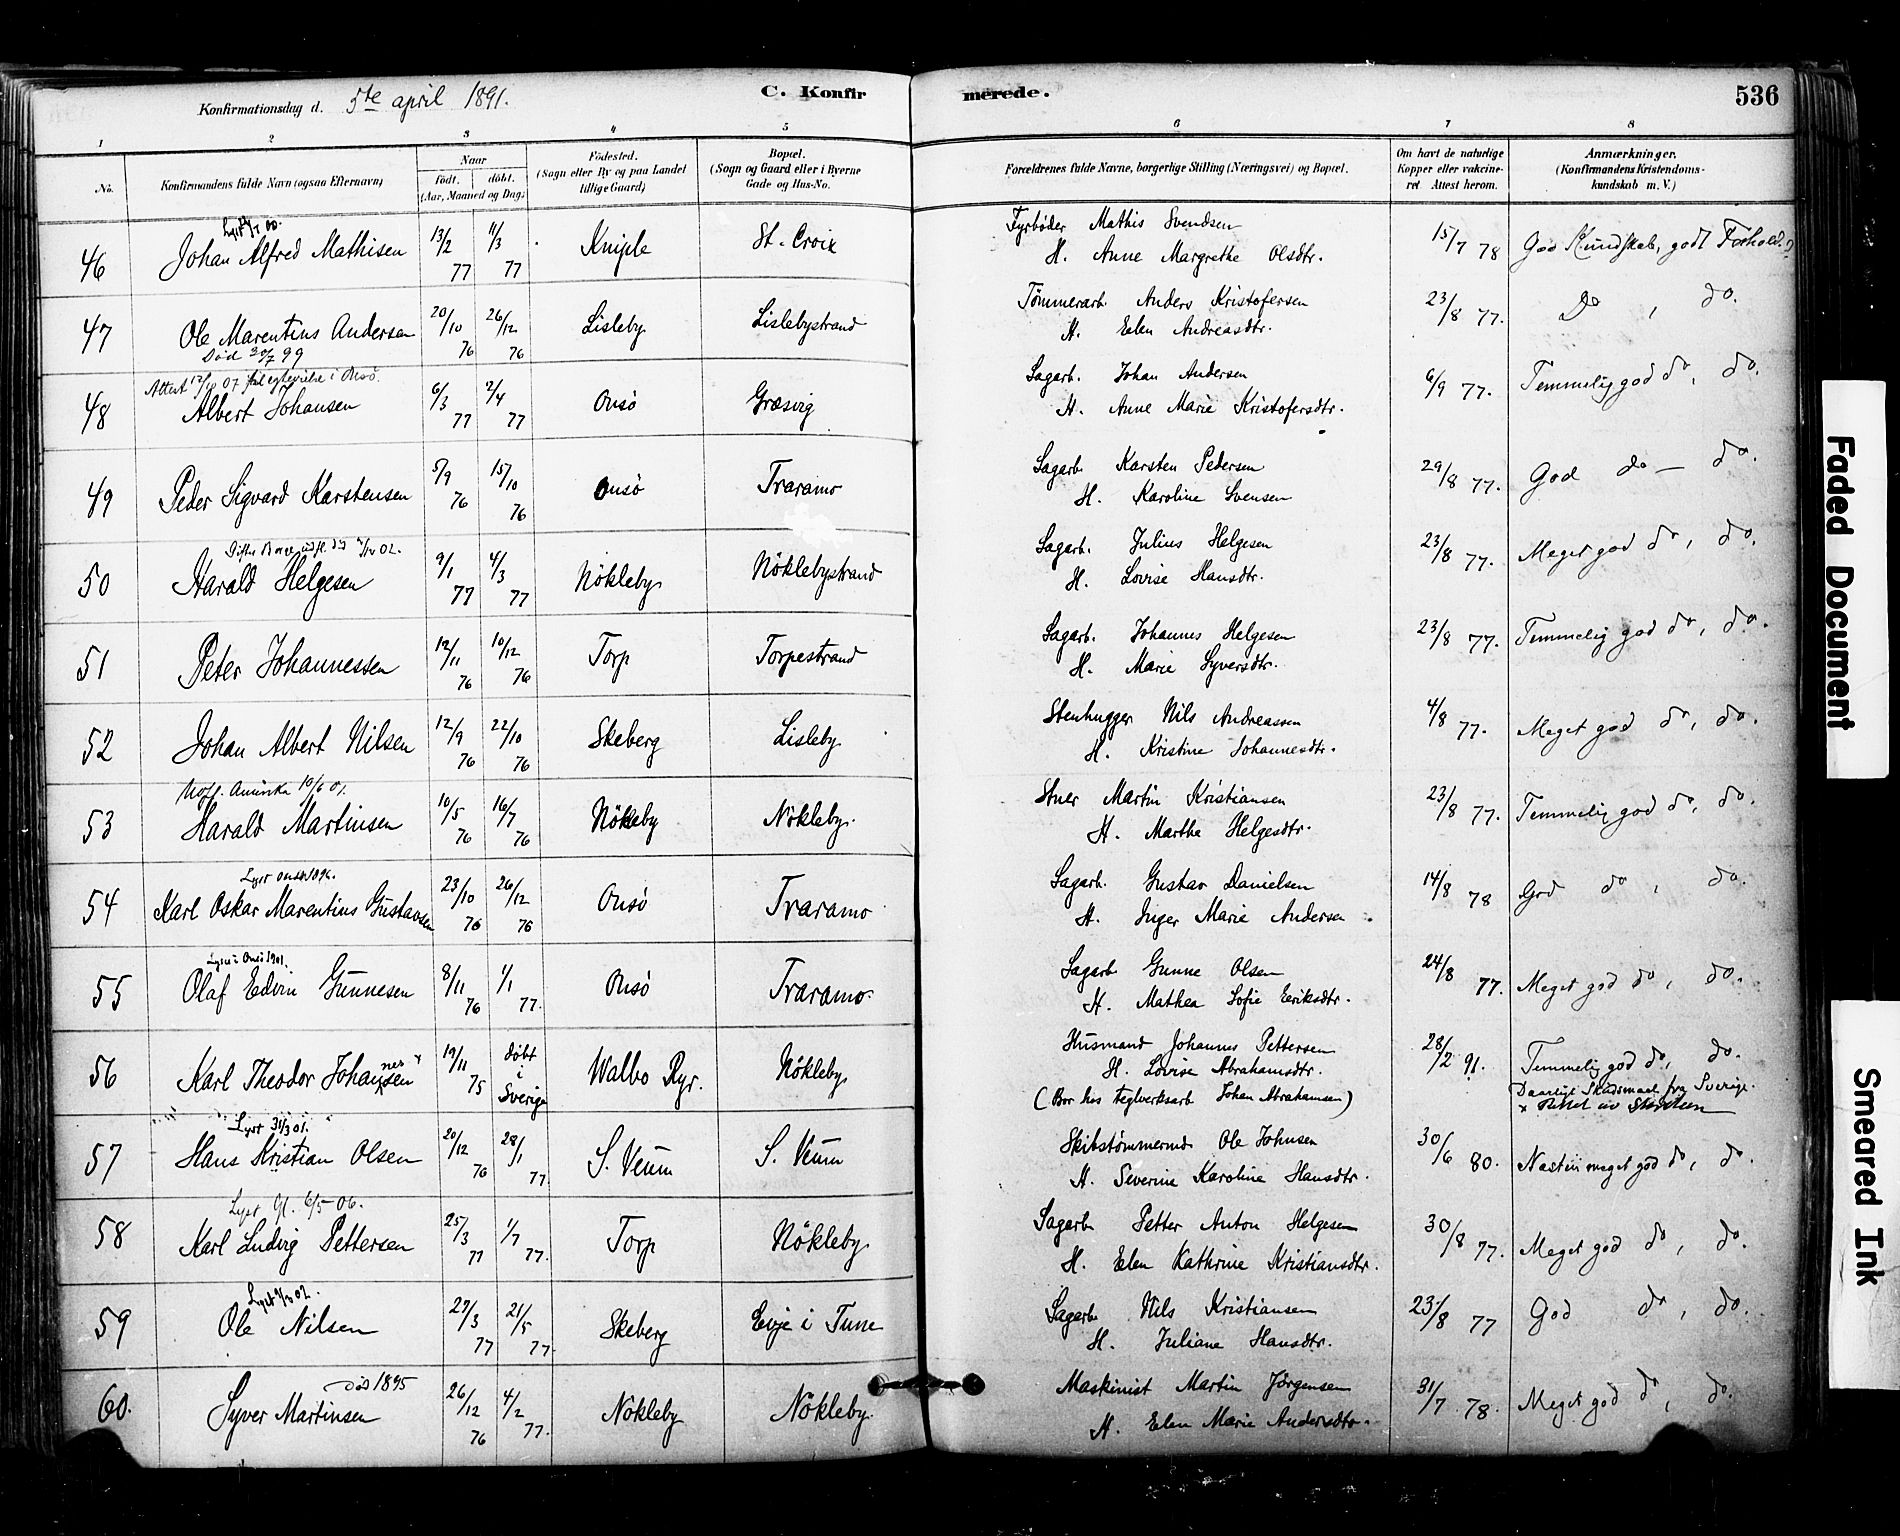 Konfirmationsdag d. 5te april 1891. C. Konfirmerede. 536
1 2 3 4 5 6 7 8
No. Konfirmandens fulde Navn (ogsaa Efternavn) Naar født. døbt. (Aar, Maaned og Dag) Fødested. (Sogn eller By og paa Landet tillige Gaard) Bopæl. (Sogn og Gaard eller i Byerne Gade og Hus-No. Forældrenes fulde Navne, borgerlige Stilling (Næringsvei) og Bopæl. Om havt de naturlige Kopper eller vaccineret Attest herom. Anmærkninger. (Konfirmandens Kristendomskundskab m. V.)
46 Johan Alfred Mathisen 13/2 77 11/3 77 Kniple St. Croix Fyrbøder Mathis Svendsen 15/7 78 God Kundskab, godt Forhold.
H. Anne Margrethe Olsdtr.
47 Ole Marentius Andersen 20/10 76 26/12 76 Lisleby Lislebystrand Tømmerarb. Anders Kristofersen 23/8 77. Do, do.
Død 30/7 99 H. Elen Andreasdtr.
48 Albert Johansen 6/3 77 2/4 77 Onsö Græsvig Sagarb. Johan Andersen 6/9 77. Temmelig god do, do.
H. Anne Marie Kristofersdtr.
49 Peder Sigvard Karstensen 5/9 76 15/10 76 Onsö Traramo Sagarb. Karsten Pedersen 29/8 77. God do — do.
H. Karoline Svensen
50 Harald Helgesen 9/1 77 4/3 77 Nökleby Nöklebystrand Sagarb. Julius Helgesen 23/8 77. Meget god do, do.
H. Lovise Hansdtr.
51 Peter Johannessen 12/11 76 10/12 76 Torp Torpestrand Sagarb. Johannes Helgesen 23/8 77. Temmelig god do, do.
H. Marie Syversdtr.
52 Johan Albert Nilsen 12/9 76 22/10 76 Skeberg Lisleby Stenhugger Nils Andreassen 4/8 77. Meget god do, do.
H. Kristine Johannesdtr.
Amerika 10/6 01.
53 Harald Martinsen 10/5 76 16/7 76 Nökleby Nökleby. Stuer Martin Kristiansen 23/8 77. Temmelig god do, do.
H. Marthe Helgesdtr.
54 Karl Oskar Marentius Gustavsen 23/10 76 26/12 76 Onsö Traramo Sagarb. Gustav Danielsen 14/8 78 God do, do.
H. Inger Marie Andersen.
Lyst i Onsö 1901.
55 Olaf Edvin Gunnesen 8/11 76 1/1 77. Onsö Traramo. Sagarb Gunne Olsen 24/8 77. Meget god do, do.
H. Mathea Sofie Eriksdtr.
56 Karl Theodor Johannesen 19/11 75 døbt i Sverige Walbo Ryr. Nökleby Husmand Johannes Pettersen 28/2 91. Temmelig god do, do.
H. Lovise Abrahamsdtr. Daarligt Skudsmaal fra Sverige.
(Bor hos teglverksarb Johan Abrahamsen)
Lyst 31/3 01.
57 Hans Kristian Olsen 20/12 76 28/1 77. S. Veum S. Veum Skibstömmermd Ole Johnsen 30/6 80. Næsten meget god do, do.
H. Severine Karoline Hansdtr.
Lyst Gl. 6/5-06.
58 Karl Ludvig Pettersen 25/3 77 1/7 77. Torp Nökleby Sagarb Petter Anton Helgesen 30/8 77. Meget god do, do.
H. Elen Kathrine Kristiansdtr.
59 Ole Nilsen 27/3 77 21/5 77. Skeberg Evje i Tune Sagarb Nils Kristiansen 23/8 77 God do, do.
H. Juliane Hansdtr.
død 1895
60. Syver Martinsen 26/12 76 4/2 77. Nökleby Nökleby. Maskinist Martin Jörgensen 31/7 78. Meget god do, do.
H. Elen Marie Andersdtr.
Faded Document
Smeared Ink